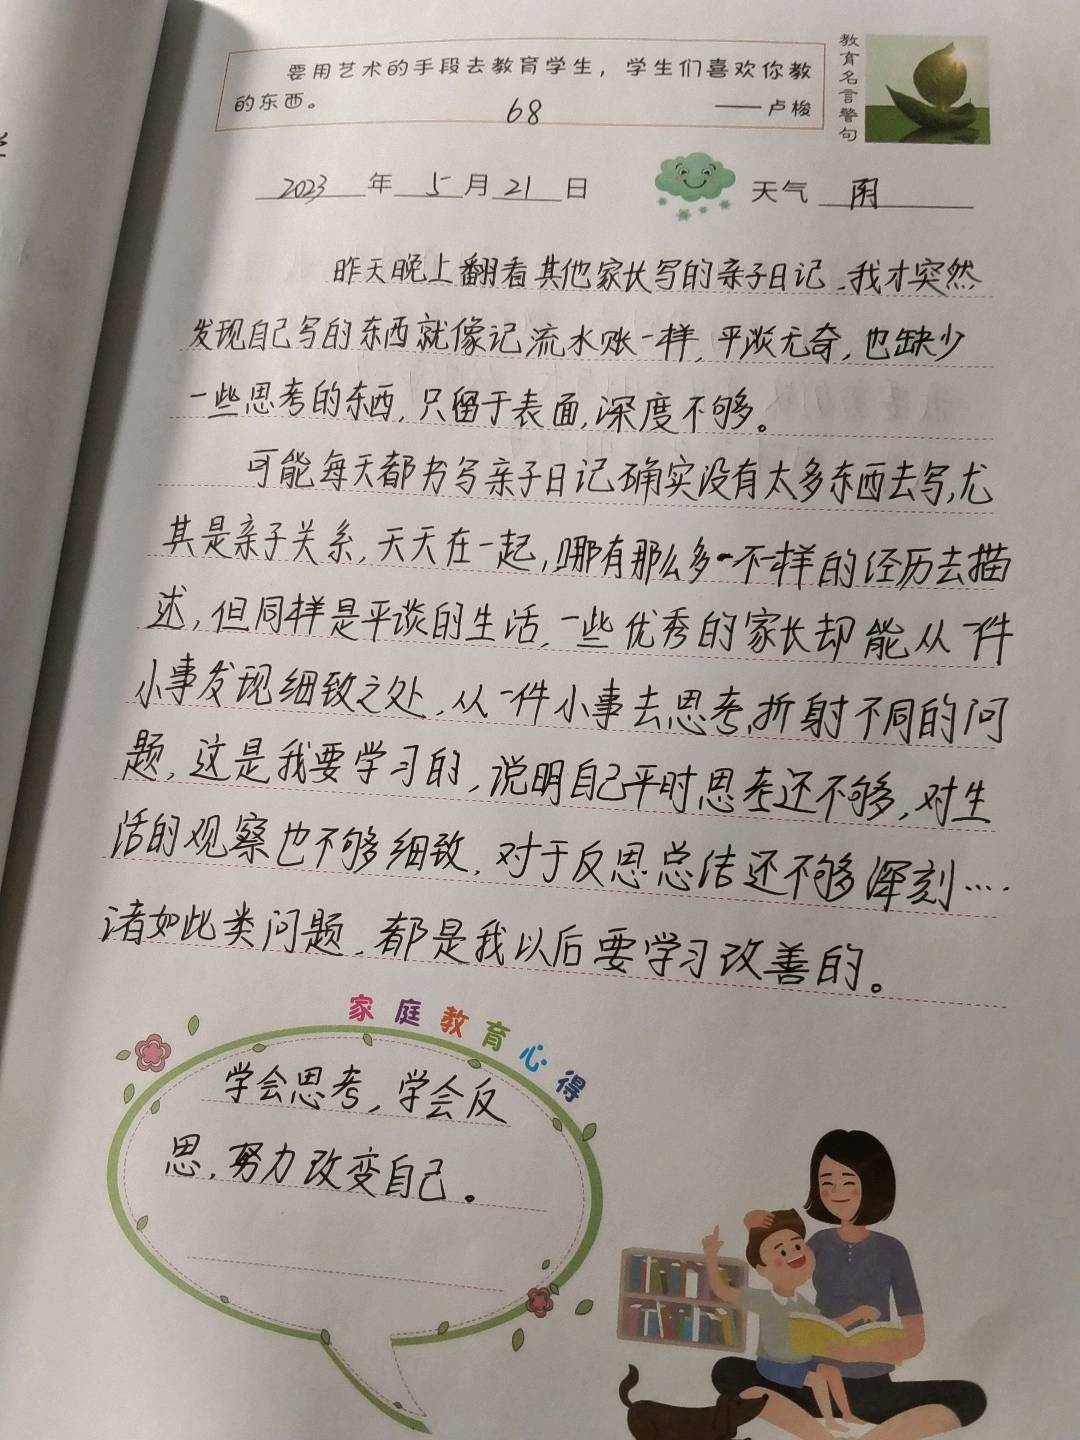 要用艺术的手段去教育学生，学生们喜欢你教
的东西。
——卢梭
68
教育名言警句
2023年5月21日
天气 阴
昨天晚上翻看其他家长写的亲子日记，我才突然
发现自己写的东西就像记流水账一样，平淡无奇，也缺少
一些思考的东西，只留于表面，深度不够。
可能每天都书写亲子日记确实没有太多东西去写，尤
其是亲子关系，天天在一起，哪有那么多不一样的经历去描
述，但同样是平谈的生活，一些优秀的家长却能从一件
小事发现细致之处，从一件小事去思考，折射不同的问
题，这是我要学习的，说明自己平时思考还不够，对生
活的观察也不够细致，对于反思总结还不够深刻····
诸如此类问题，都是我以后要学习改善的。
家庭教育心得
学会思考，学会反
思，努力改变自己。